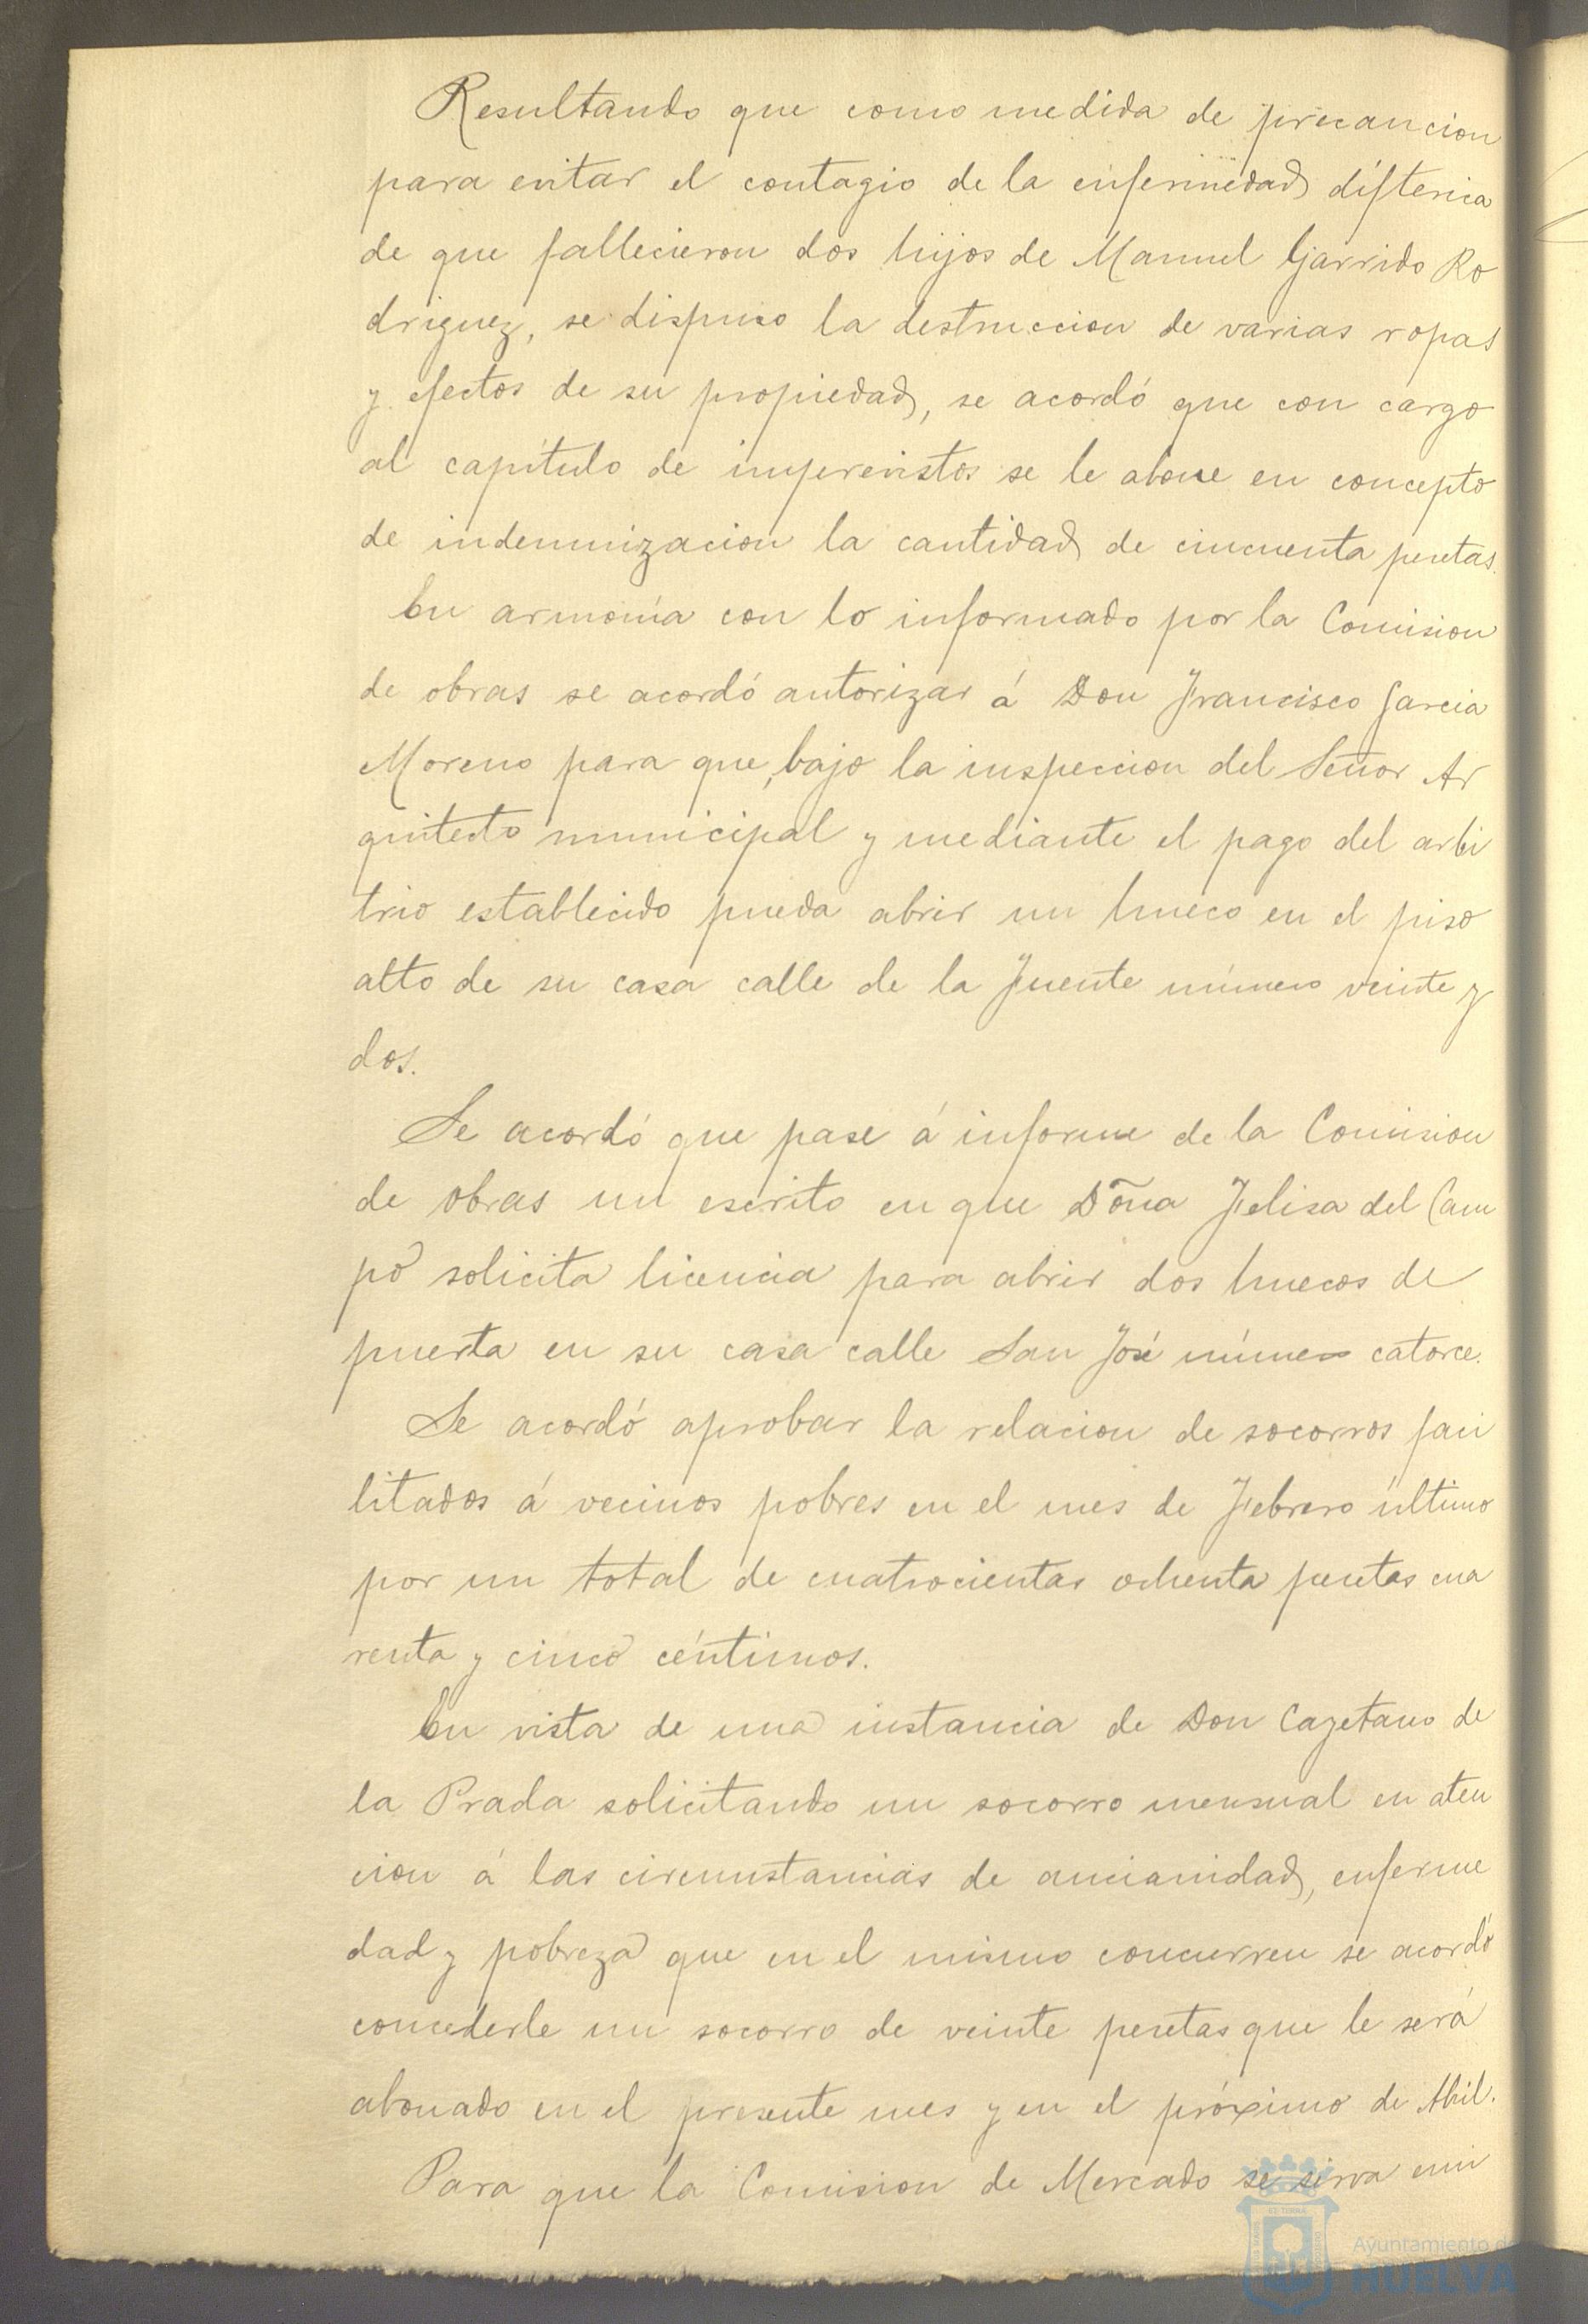 Resultando que como medida de precaucion
para evitar el contagio de la enfermedad difterica
de que fallecieron dos hijos de Manuel Garrido Ro
driguez, se dispuso la destruccion de varias ropas
y efectos de su propiedad, se acordó que con cargo
al capítulo de imprevistos se le abone en concepto
de indemnizacion la cantidad de cincuenta pesetas.
En armonía con lo informado por la Comision
de obras se acordó autorizar á Don Francisco Garcia
Moreno para que, bajo la inspeccion del Señor Ar
quitecto municipal y mediante el pago del arbi
trio establecido pueda abrir un hueco en el piso
alto de su casa calle de la Fuente número veinte y
dos.
Se acordó que pase á informe de la Comision
de obras un escrito en que Doña Felisa del Cam
po solicita licencia para abrir dos huecos de
puerta en su casa calle San José número catorce.
Se acordó aprobar la relacion de socorros faci
litados á vecinos pobres en el mes de Febrero último
por un total de cuatrocientas ochenta pesetas cua
renta y cinco céntimos.
En vista de una instancia de Don Cayetano de
la Prada solicitando un socorro mensual en aten
cion á las circunstancias de ancianidad, enferme
dad y pobreza que en el mismo concurren se acordó
concederle un socorro de veinte pesetas que le será
abonado en el presente mes y en el próximo de Abril.
Para que la Comision de Mercado se sirva emi
Ayuntamiento de
HUELVA